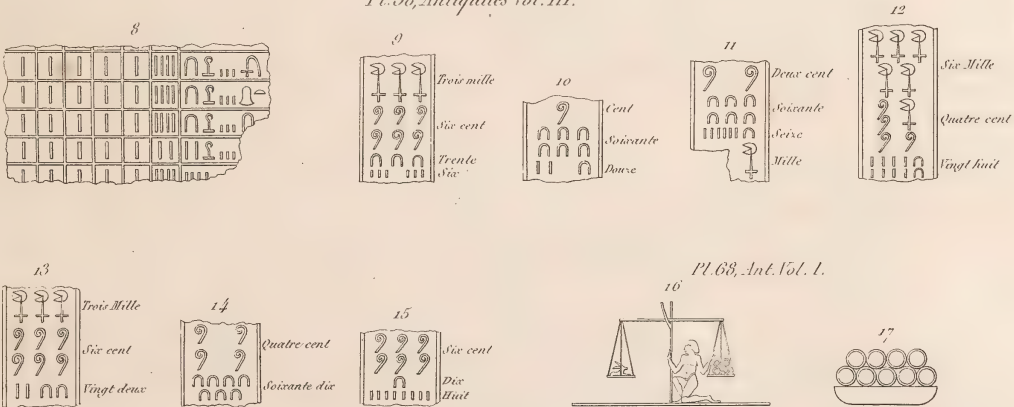 Pl.38, Antiquités Vol. III.
8
9
Trois mille
Six cent
Trente
Six
10
Cent
Soixante
Douze
11
Deux cent
Soixante
Seize
Mille
12
Six Mille
Quatre cent
Vingt huit
13
Trois Mille
Six cent
Vingt deux
14
Quatre cent
Soixante dix
15
Six cent
Dix
Huit
Pl.68, Ant. Vol. I.
16
17